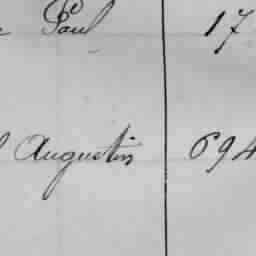 Paul 17
Augustin 694